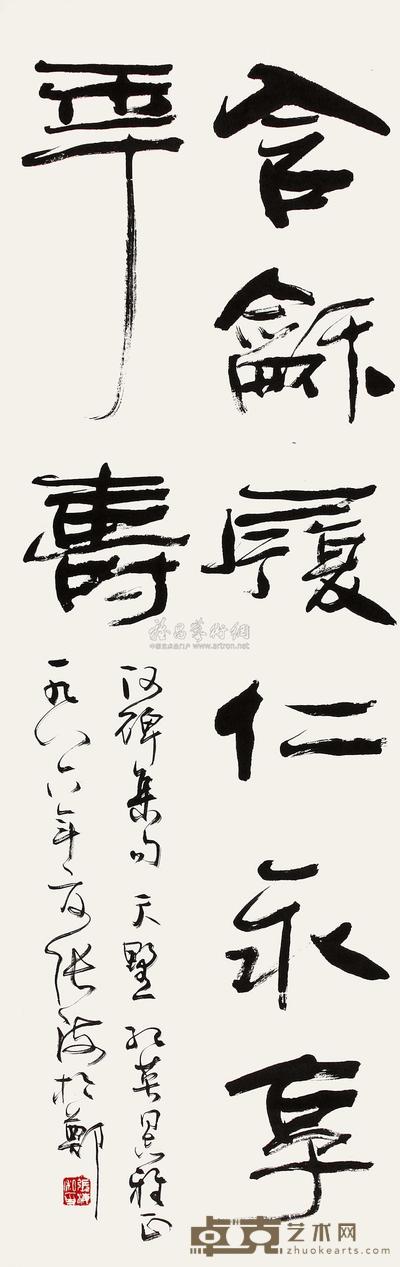 含龢履仁永享
年壽
汉碑集句 天墅 红英 雅正
一九八六年夏张海於鄭
雅昌藝術網
www.artron.net
卓克艺术网
zhuokearts.com